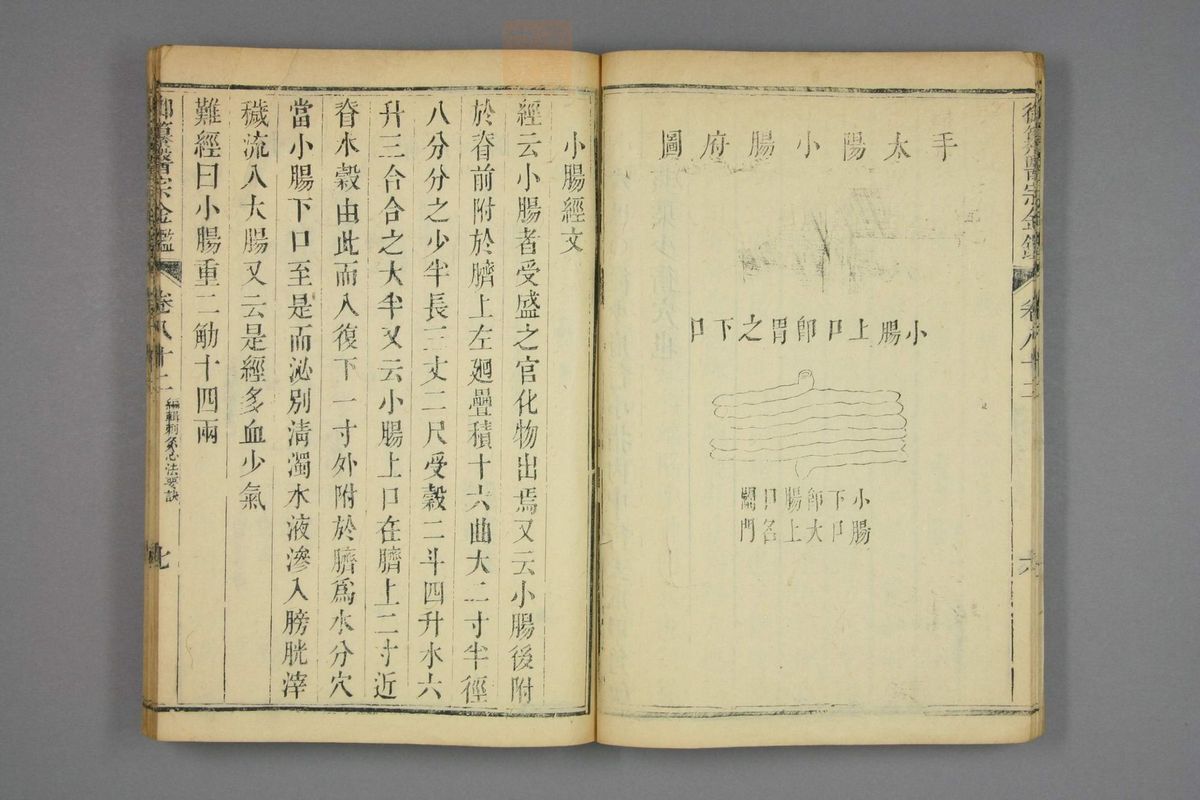 御纂醫宗金鑑
卷八十二
六
手太陽小腸府圖
小腸上口卽胃之下口
小腸
下口
卽大
腸上
口名
闌門
小腸經文
經云小腸者受盛之官化物出焉又云小腸後附
於脊前附於臍上左廻疊積十六曲大二寸半徑
八分分之少半長三丈二尺受穀二斗四升水六
升三合合之大半又云小腸上口在臍上二寸近
脊水穀由此而入復下一寸外附於臍爲水分穴
當小腸下口至是而泌別清濁水液滲入膀胱滓
穢流入大腸又云是經多血少氣
難經曰小腸重二觔十四兩
御纂醫宗金鑑
卷八十二
編輯刺灸心法要訣
七